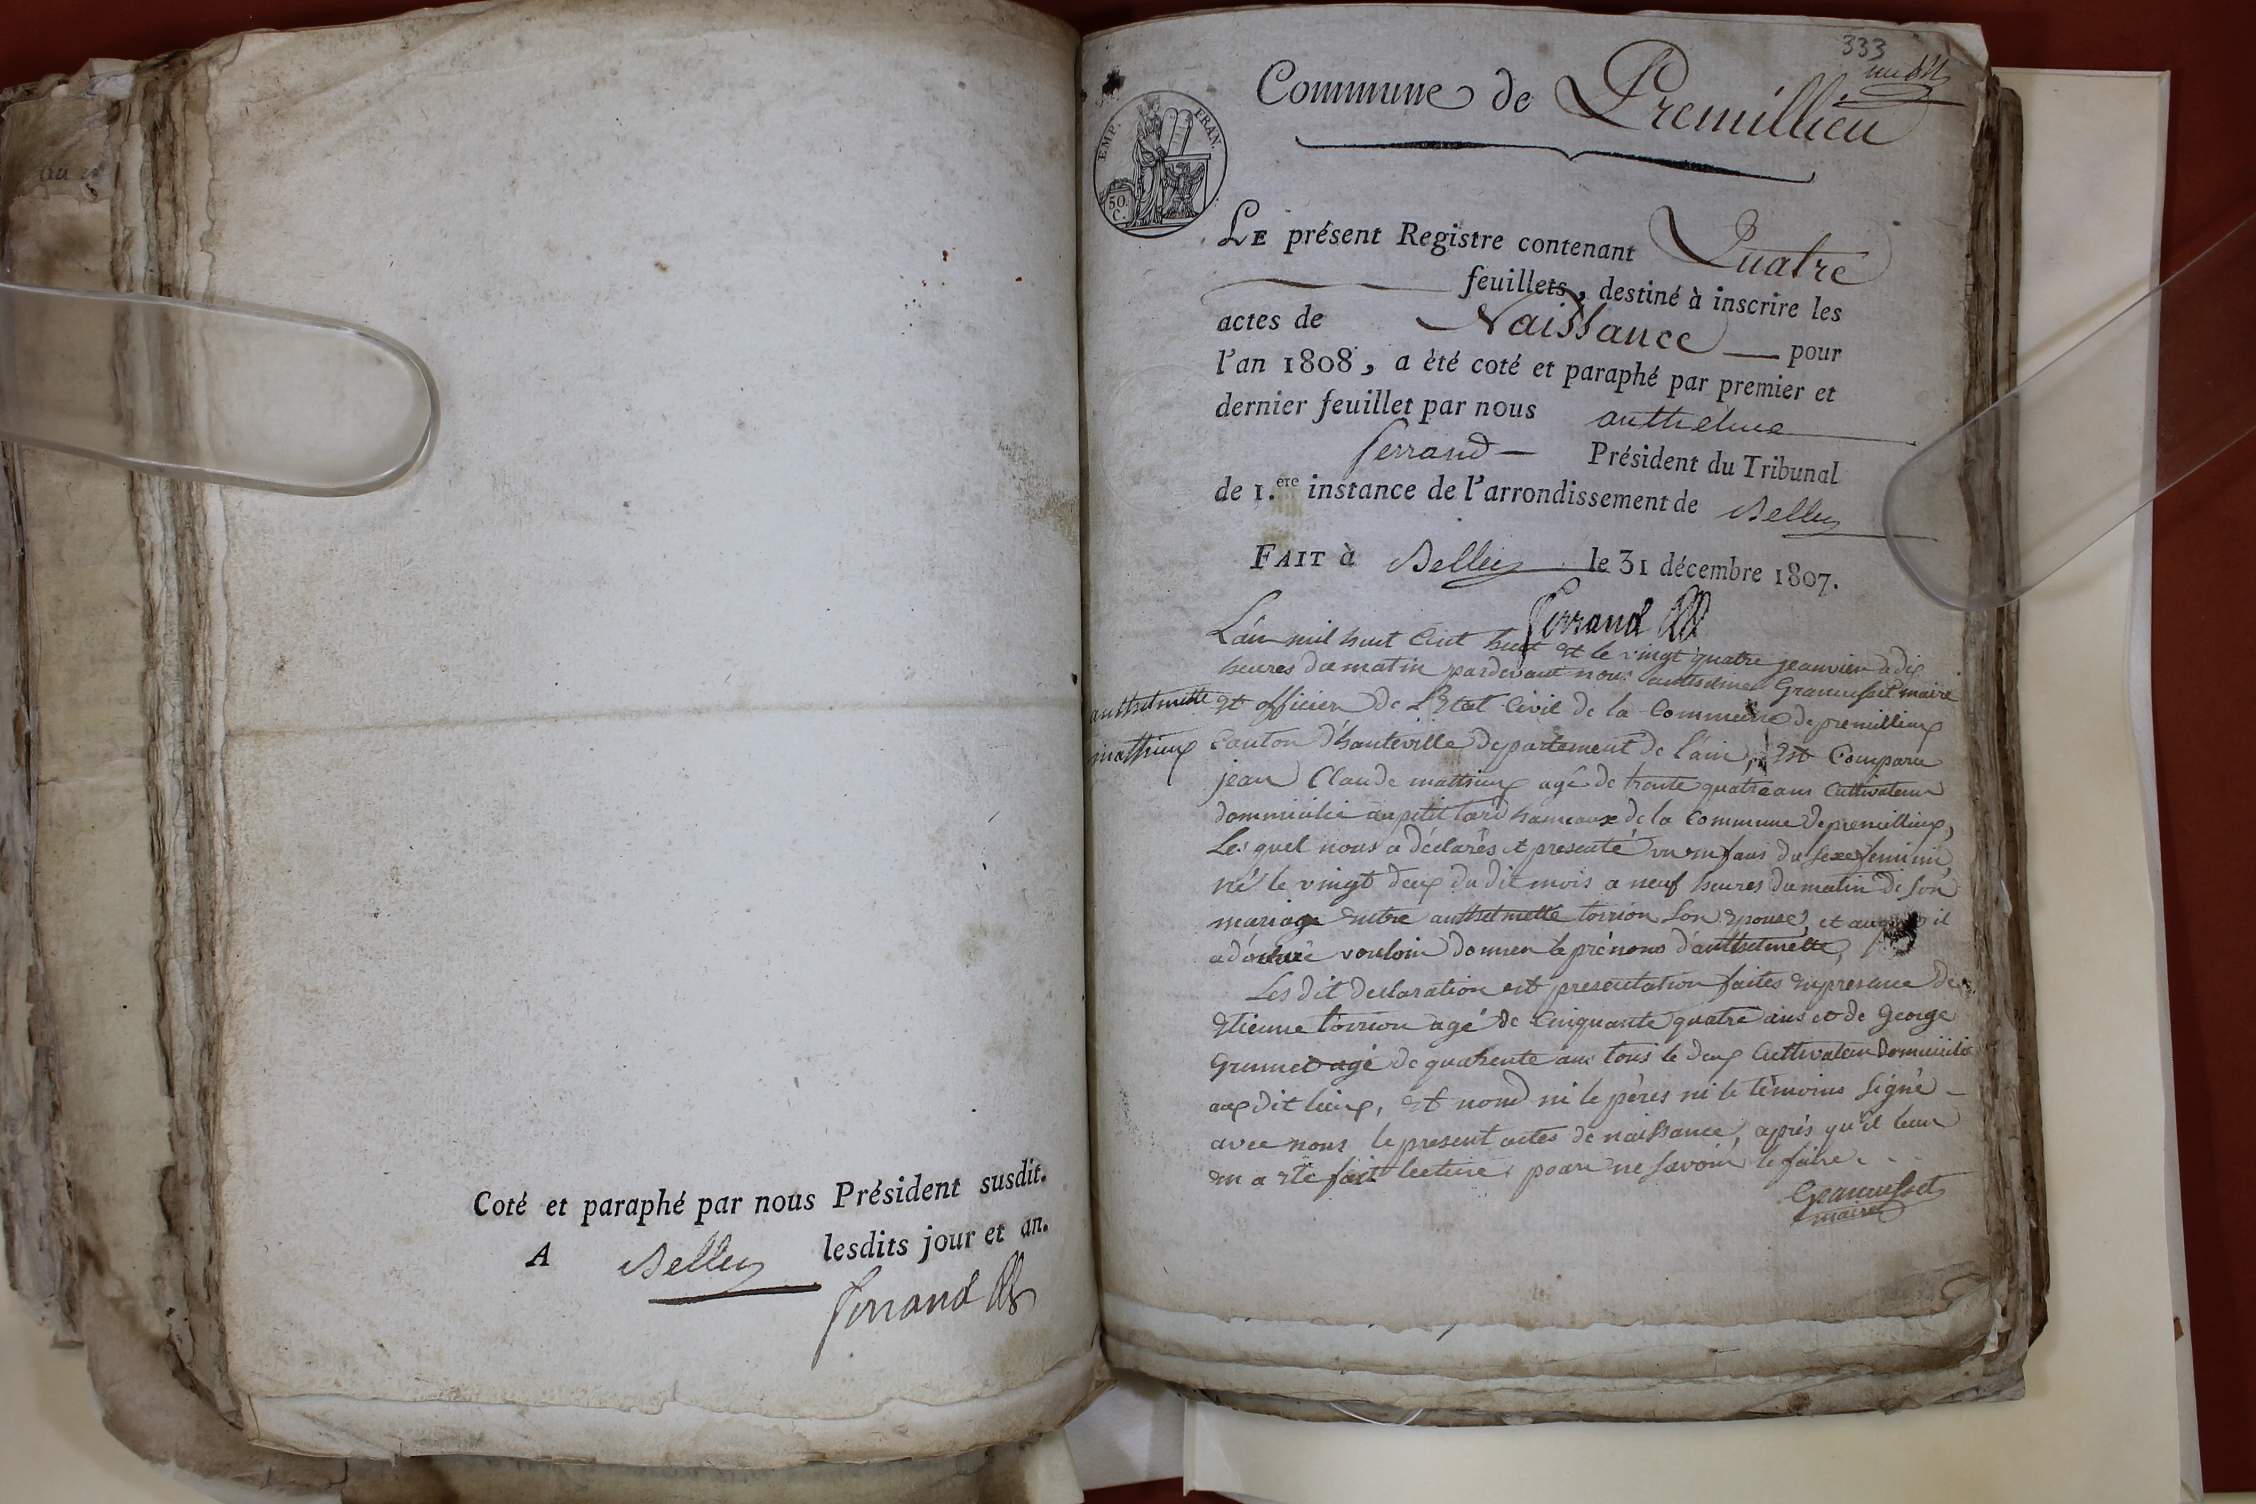 Coté et paraphé par nous Président susdit.
A Belley lesdits jour et an.
Ferrand
333
Commune de Premillieu
EMP. FRAN.
50. C.
LE présent Registre contenant Quatre
feuillets, destiné à inscrire les
actes de Naissance pour
l'an 1808, a été coté et paraphé par premier et
dernier feuillet par nous anthelme
ferrand Président du Tribunal
de 1.ere instance de l'arrondissement de Belley
FAIT à Belley le 31 décembre 1807.
Ferrand
L'an mil huit Cent huit et le vingt quatre jeanvier a dix
heures du matin pardevant nous anthelme maire
anthelmette
et officier de L'Etat Civil de la Commune de premillieux
mathieux
Canton d'hauteville departement de l'ain, est Comparu
jean Claude mathieux agé de trente quatre ans Cultivateur
dommicilié au petit hameaux de la Commune de premillieux,
Les quel nous a déclarés et presenté un enfans du sexe feminin,
né le vingt deux du dit mois a neuf heures du matin de son
mariage entre anthelmette torrion son epouse, et auquel il
a déclaré vouloir donner le prénoms d'anthelmette,
Les dit declaration et presentation faites en presance de
Etienne torrion agé de Cinquante quatre ans et de George
Grumet agé de quarente ans tous le deux Cultivateur domicilié
aux dit lieux, et nond ni le pères ni le témoins signé
avec nous le present actes de naissance, après qu'il leur
en a été fait lecture, pour ne savoir le faire.
maire